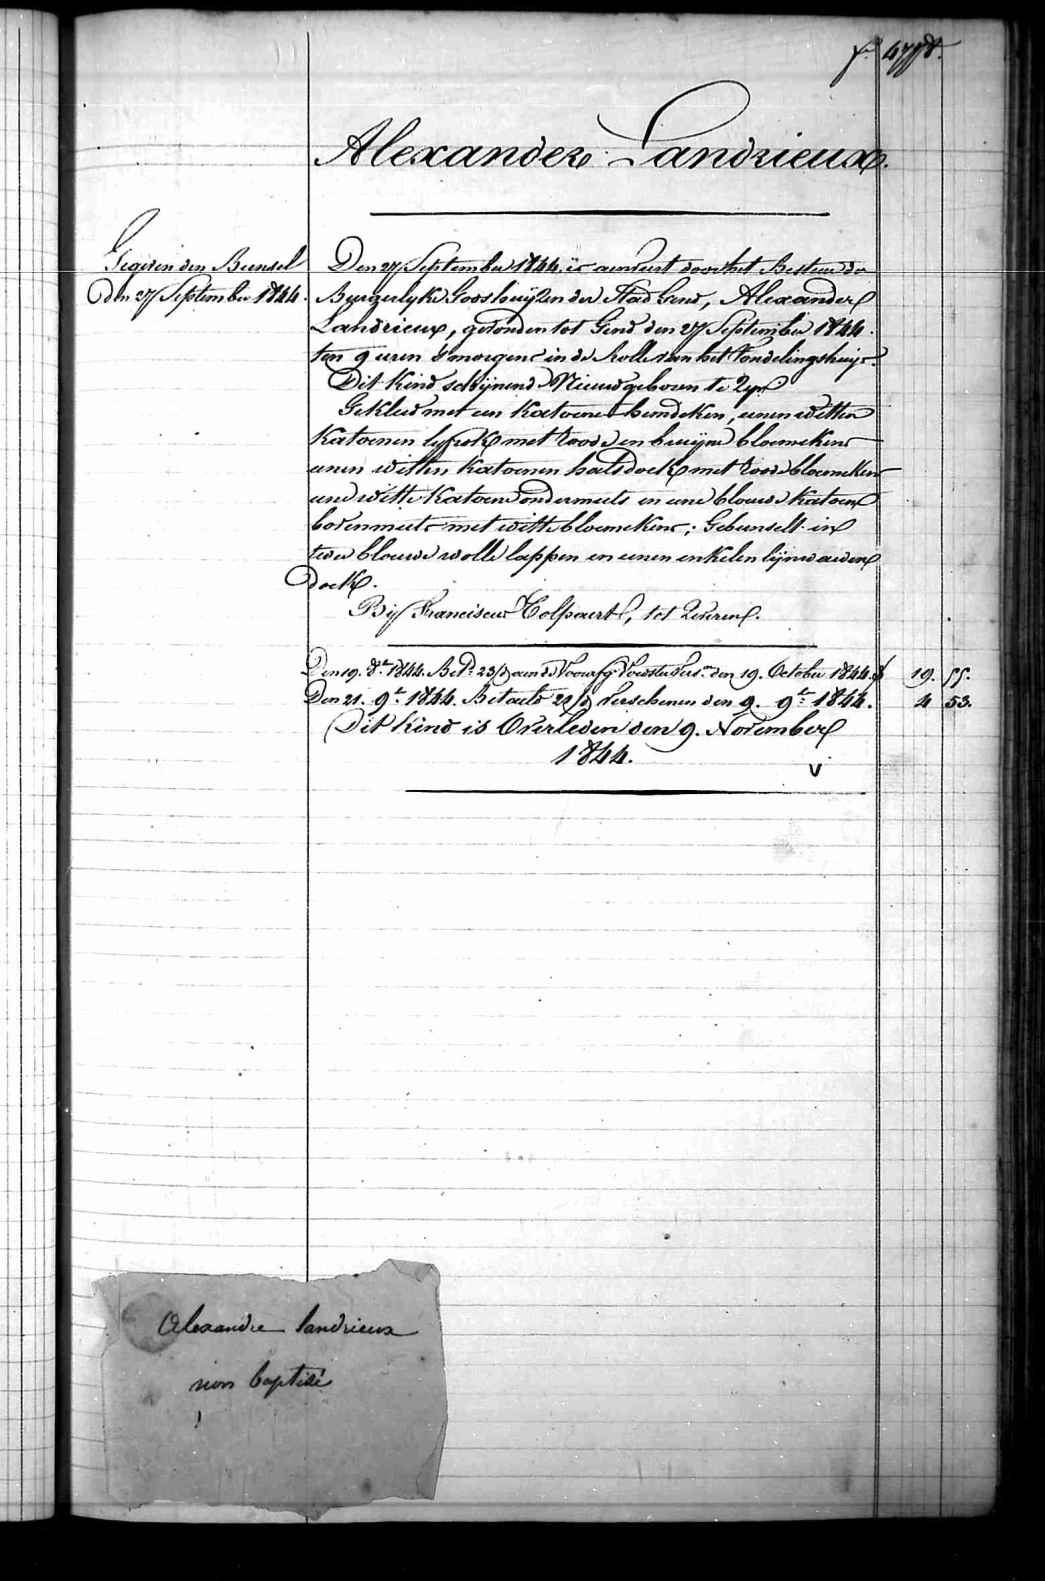 Alexander Landrieux.
Gegeven den Bunsel
den 27 September 1844.
Den 27 September 1844. is aenveert door het Bestuer der
Burgerlyke Godshuijzen der Stad Gend, Alexander
Landrieux, gevonden tot Gend den 27 September 1844.
ten 9 uren s'morgens in de Rolle van het Vondelingshuijs.
Dit Kind schijnend Nieuwgeboren te Zyn
Gekleed met een Katoene hemdeken, eenen witten
Katoenen lyfrok met roode en bruijne bloemekens
eenen witten Katoenen halsdoek met roode bloemekens
eene witte Katoene ondermuts en eene blauwe Katoene
bovenmuts met witte bloemekens; Gebunselt in
twee blauwe wolle lappen en eenen enkelen lijnwaeden
doek.
Bij Franciscus Colpaert, tot Zeveren.
Den 19. 8br 1844. Betd 23/d aen de Voorszg Voedster Vers. den 19. October 1844. 19. 55.
Den 21. 9br 1844. Betaelt 21/d Verschenen den 9. 9br 1844. 4 53.
Dit Kind is Overleden den 9. November
1844.
Alexandre landrieux
non baptisé